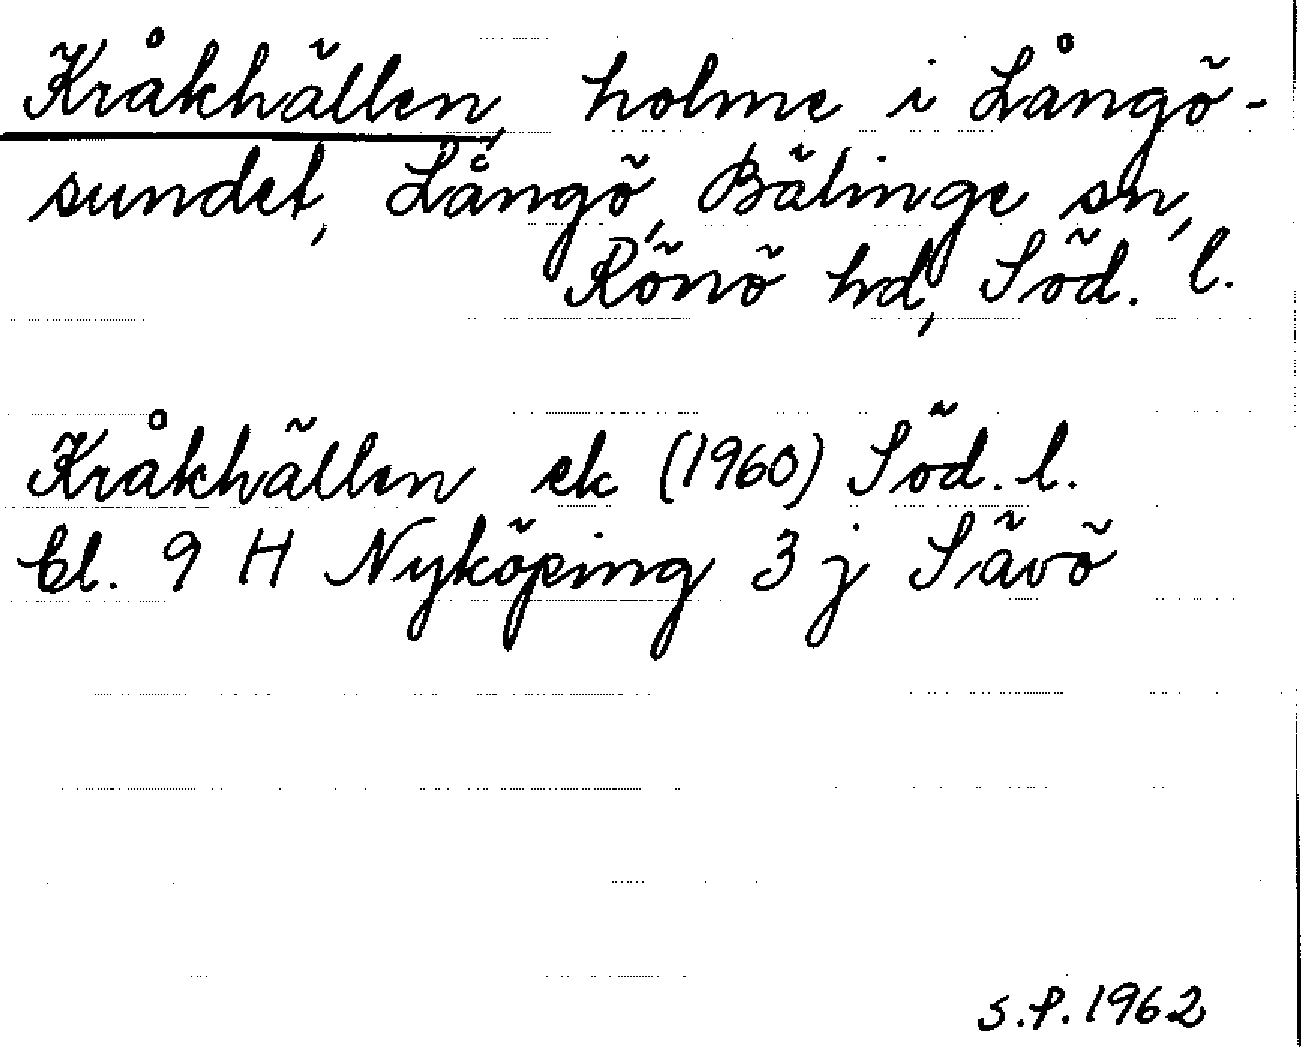 Kråkhällen, holme i Långö-
sundet, Långö, Bälinge sn,
Rönö hd, Söd. l.
Kråkhällen ek (1960) Söd. l.
bl. 9 H Nyköping 3 j Sävö
S.P. 1962